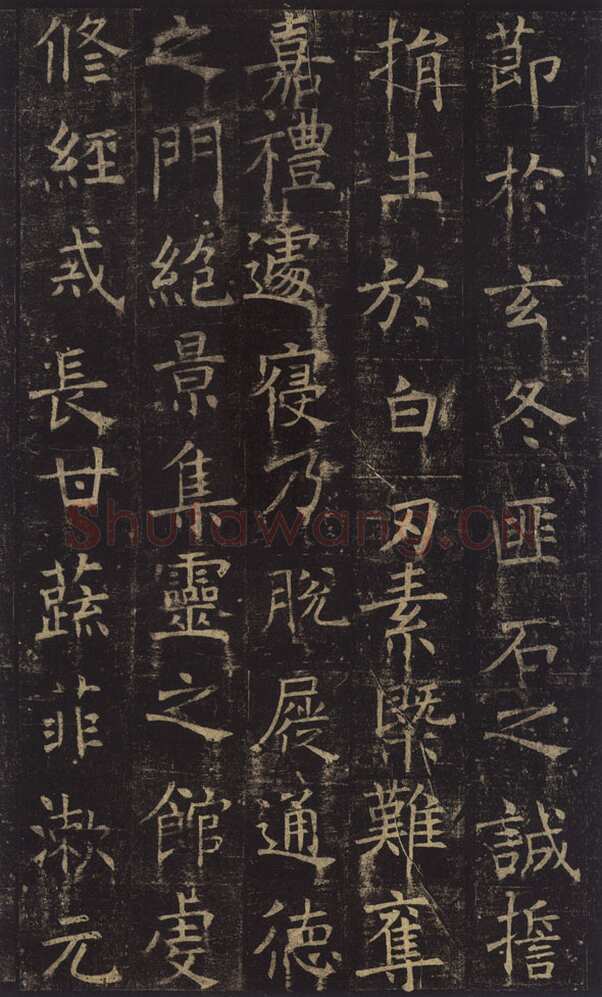 節於玄冬匪石之誠擔
捐生於白刃素槩難奪
嘉禮遽寢乃脫屣通德
之門絕景集靈之館虔
修經戒長甘蔬菲漱元
Shufawang.cn